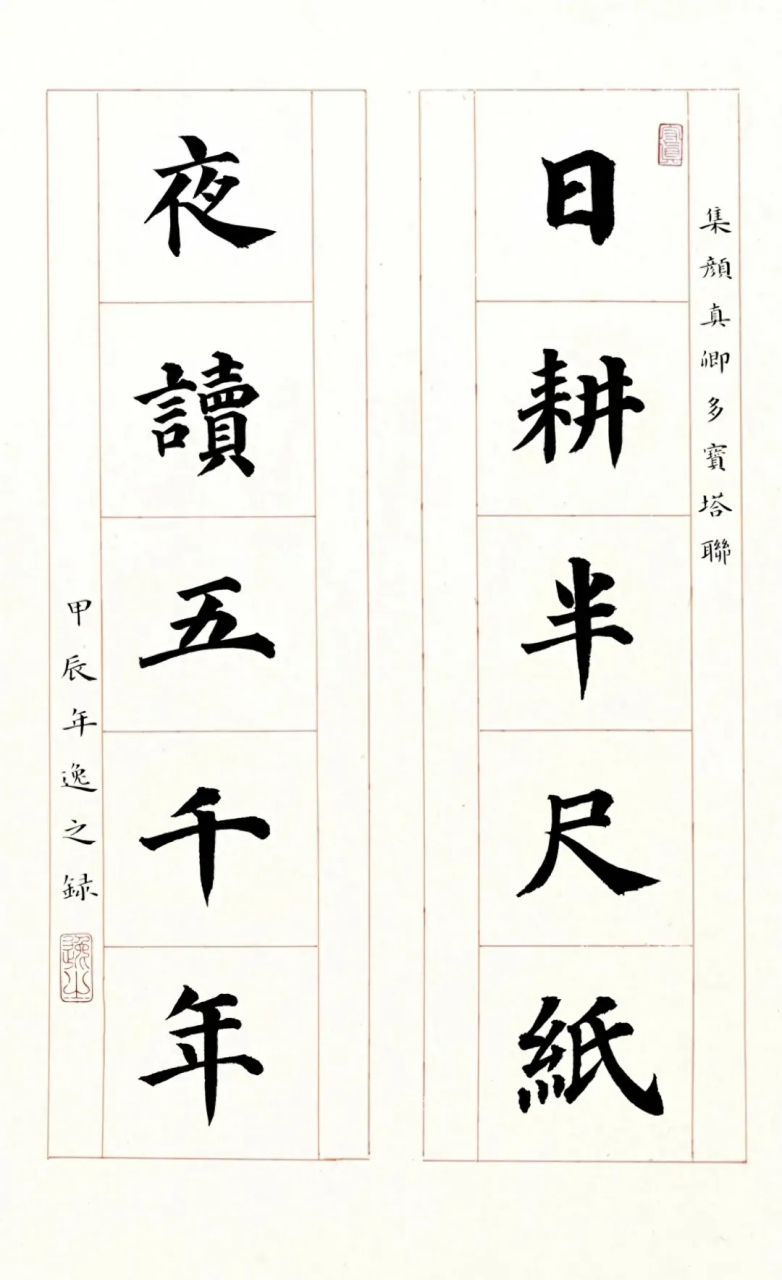 集顔真卿多寶塔聯
日耕半尺紙
夜讀五千年
甲辰年逸之録
逸之